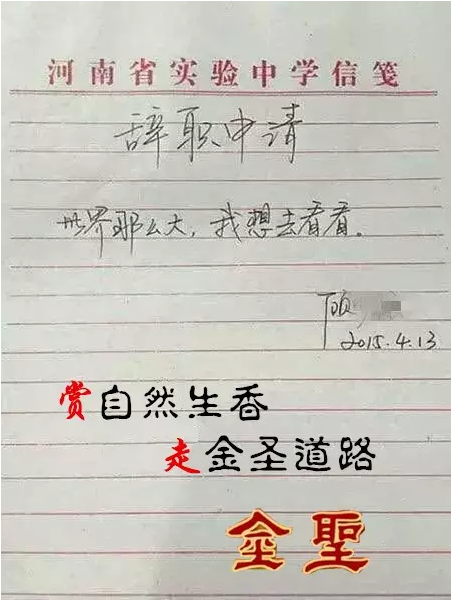 河南省实验中学信笺
辞职申请
世界那么大，我想去看看。
顾
2015.4.13
赏自然生香
走金圣道路
金聖